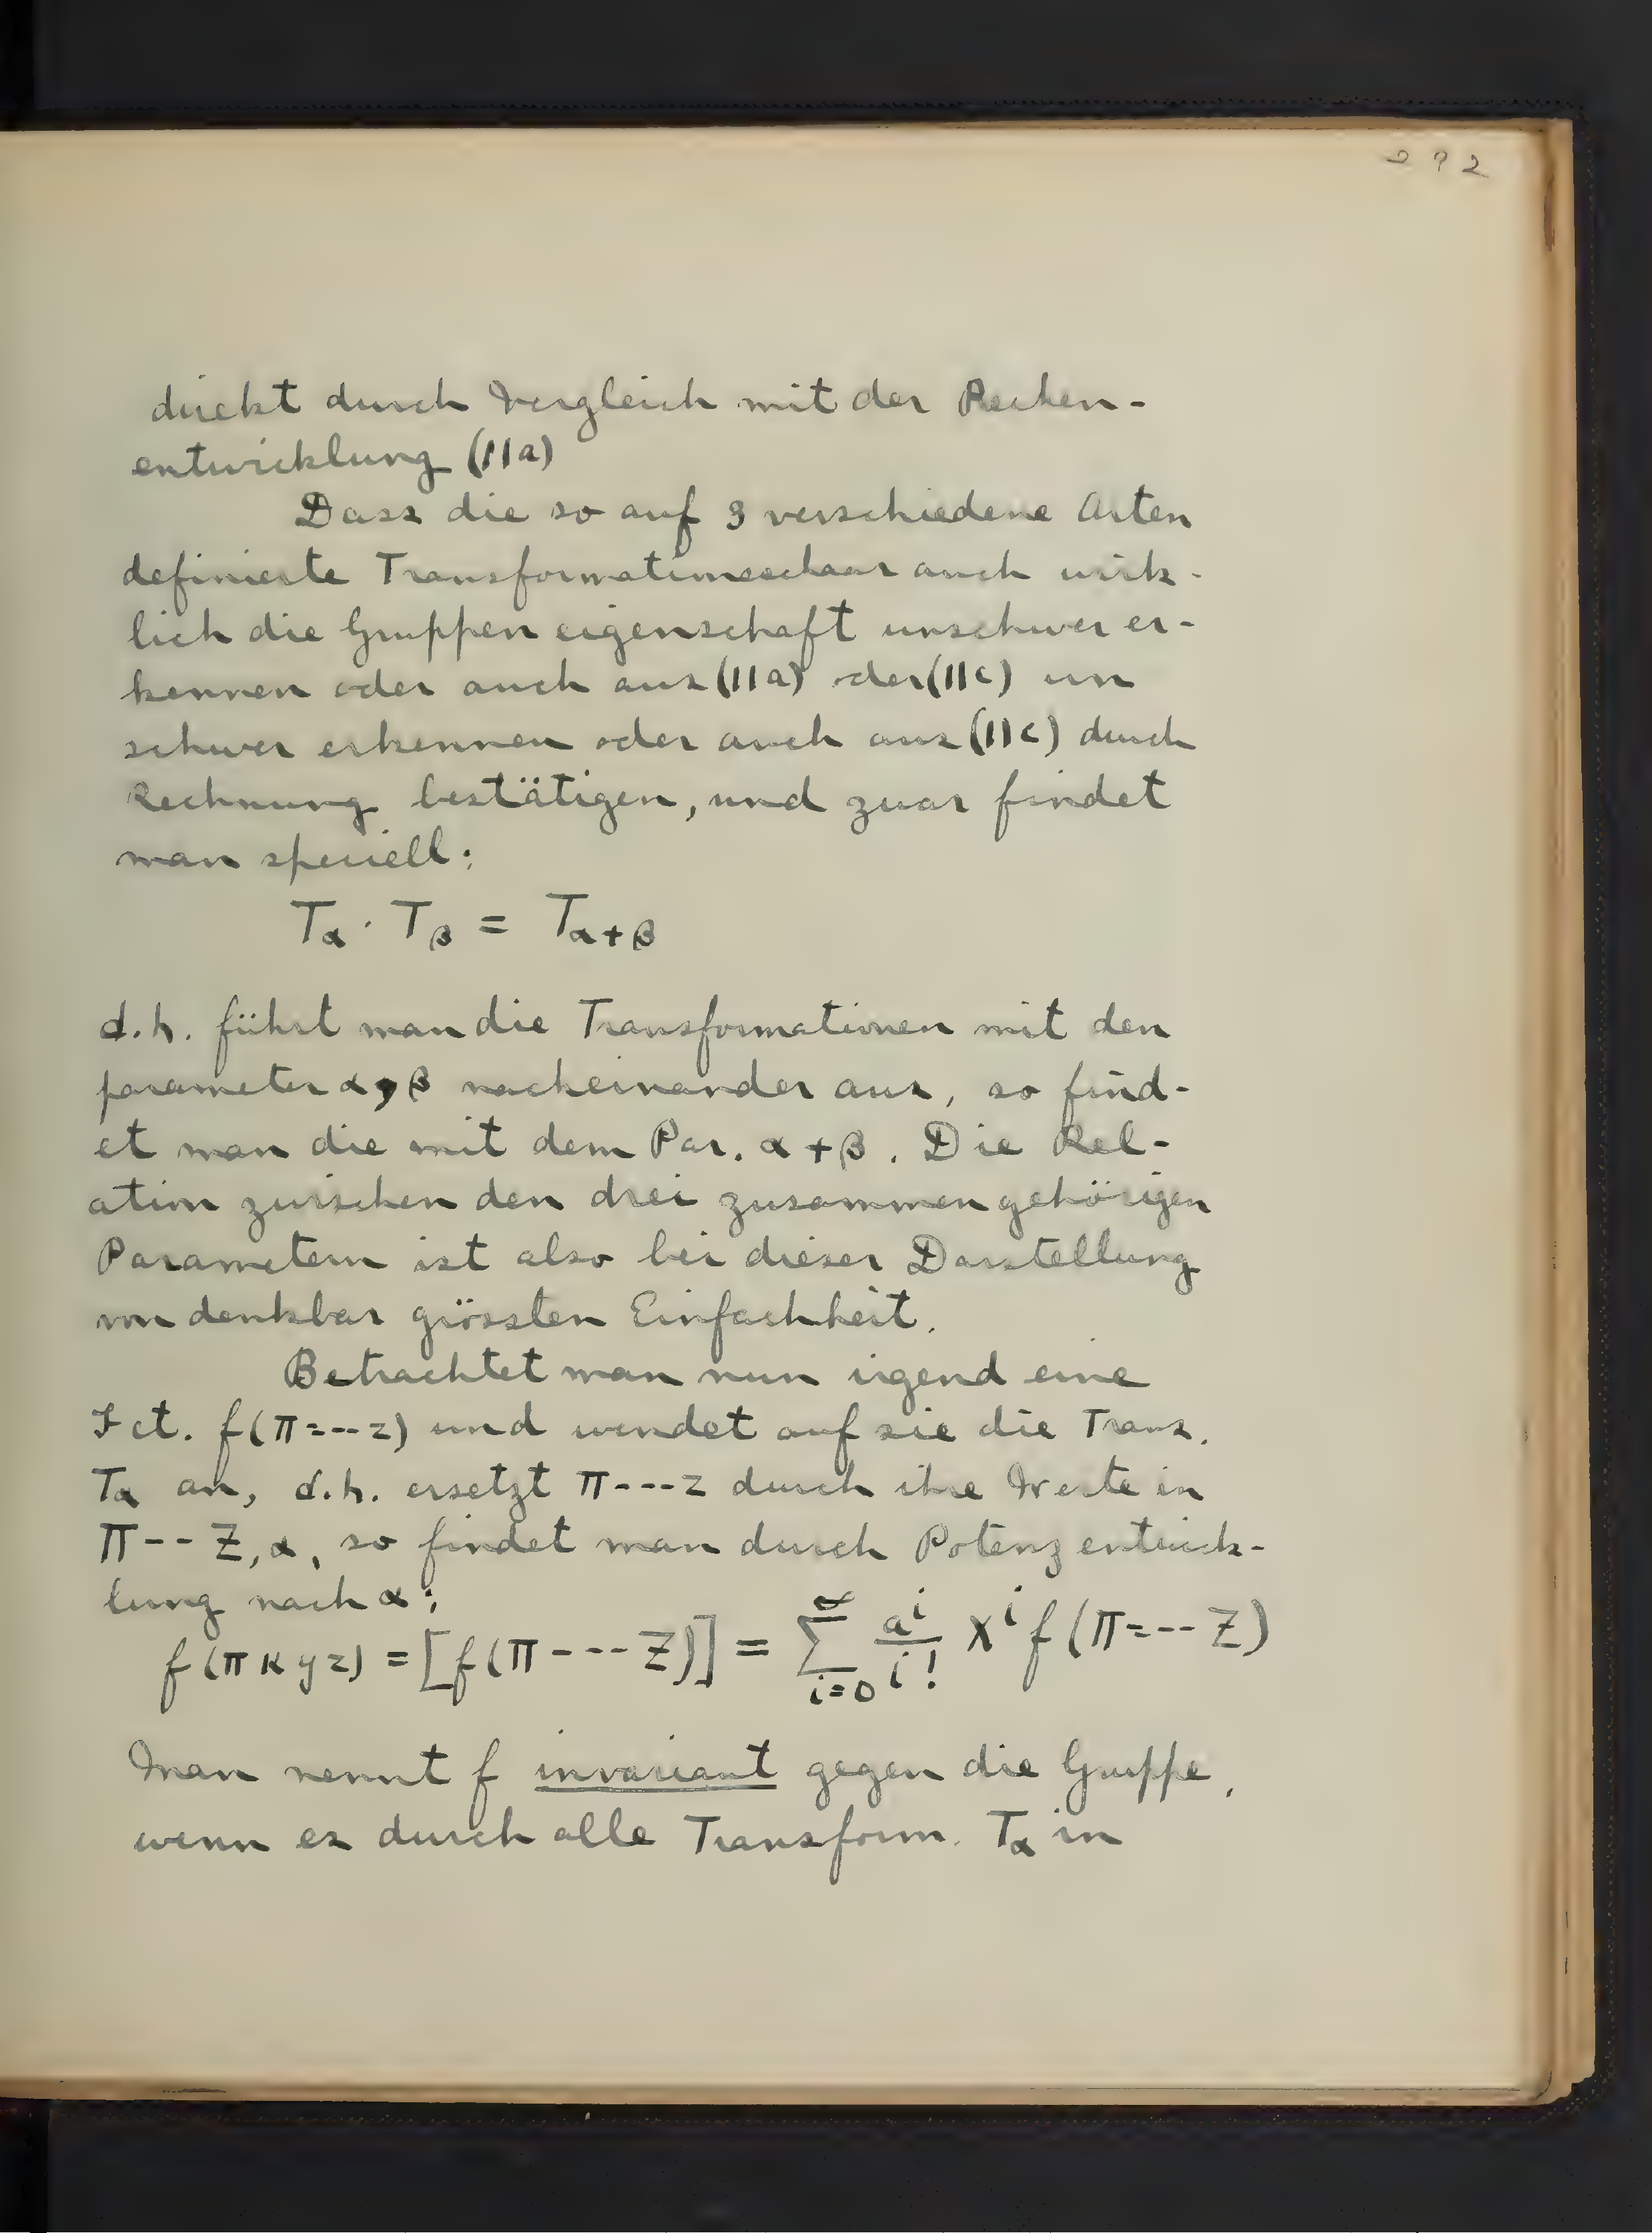 292
direkt durch Vergleich mit der Reihen-
entwicklung (11a)
Dass die so auf 3 verschiedene Arten
definierte Transformationsschaar auch wirk-
lich die Gruppeneigenschaft unschwer er-
kennen oder auch aus (11a) oder (11c) un
schwer erkennen oder auch aus (11c) durch
Rechnung bestätigen, und zwar findet
man speciell:
Tα · Tβ = Tα+β
d.h. führt man die Transformationen mit den
parameter α, β nacheinander aus, so find-
et man die mit dem Par. α + β. Die Rel-
ation zwischen den drei zusammengehörigen
Parametern ist also bei dieser Darstellung
von denkbar grössten Einfachheit.
Betrachtet man nun irgend eine
Fct. f(π=--z) und wendet auf sie die Trans.
Tα an, d.h. ersetzt π---z durch ihre Werte in
Π--Z, α, so findet man durch Potenzentwick-
lung nach α:
f(πκyz) = [f(Π---Z)] = ∑_{i=0}^{∞} a^i/i! X^i f(Π=---Z)
Man nennt f invariant gegen die Gruppe,
wenn es durch alle Transform. Tα in